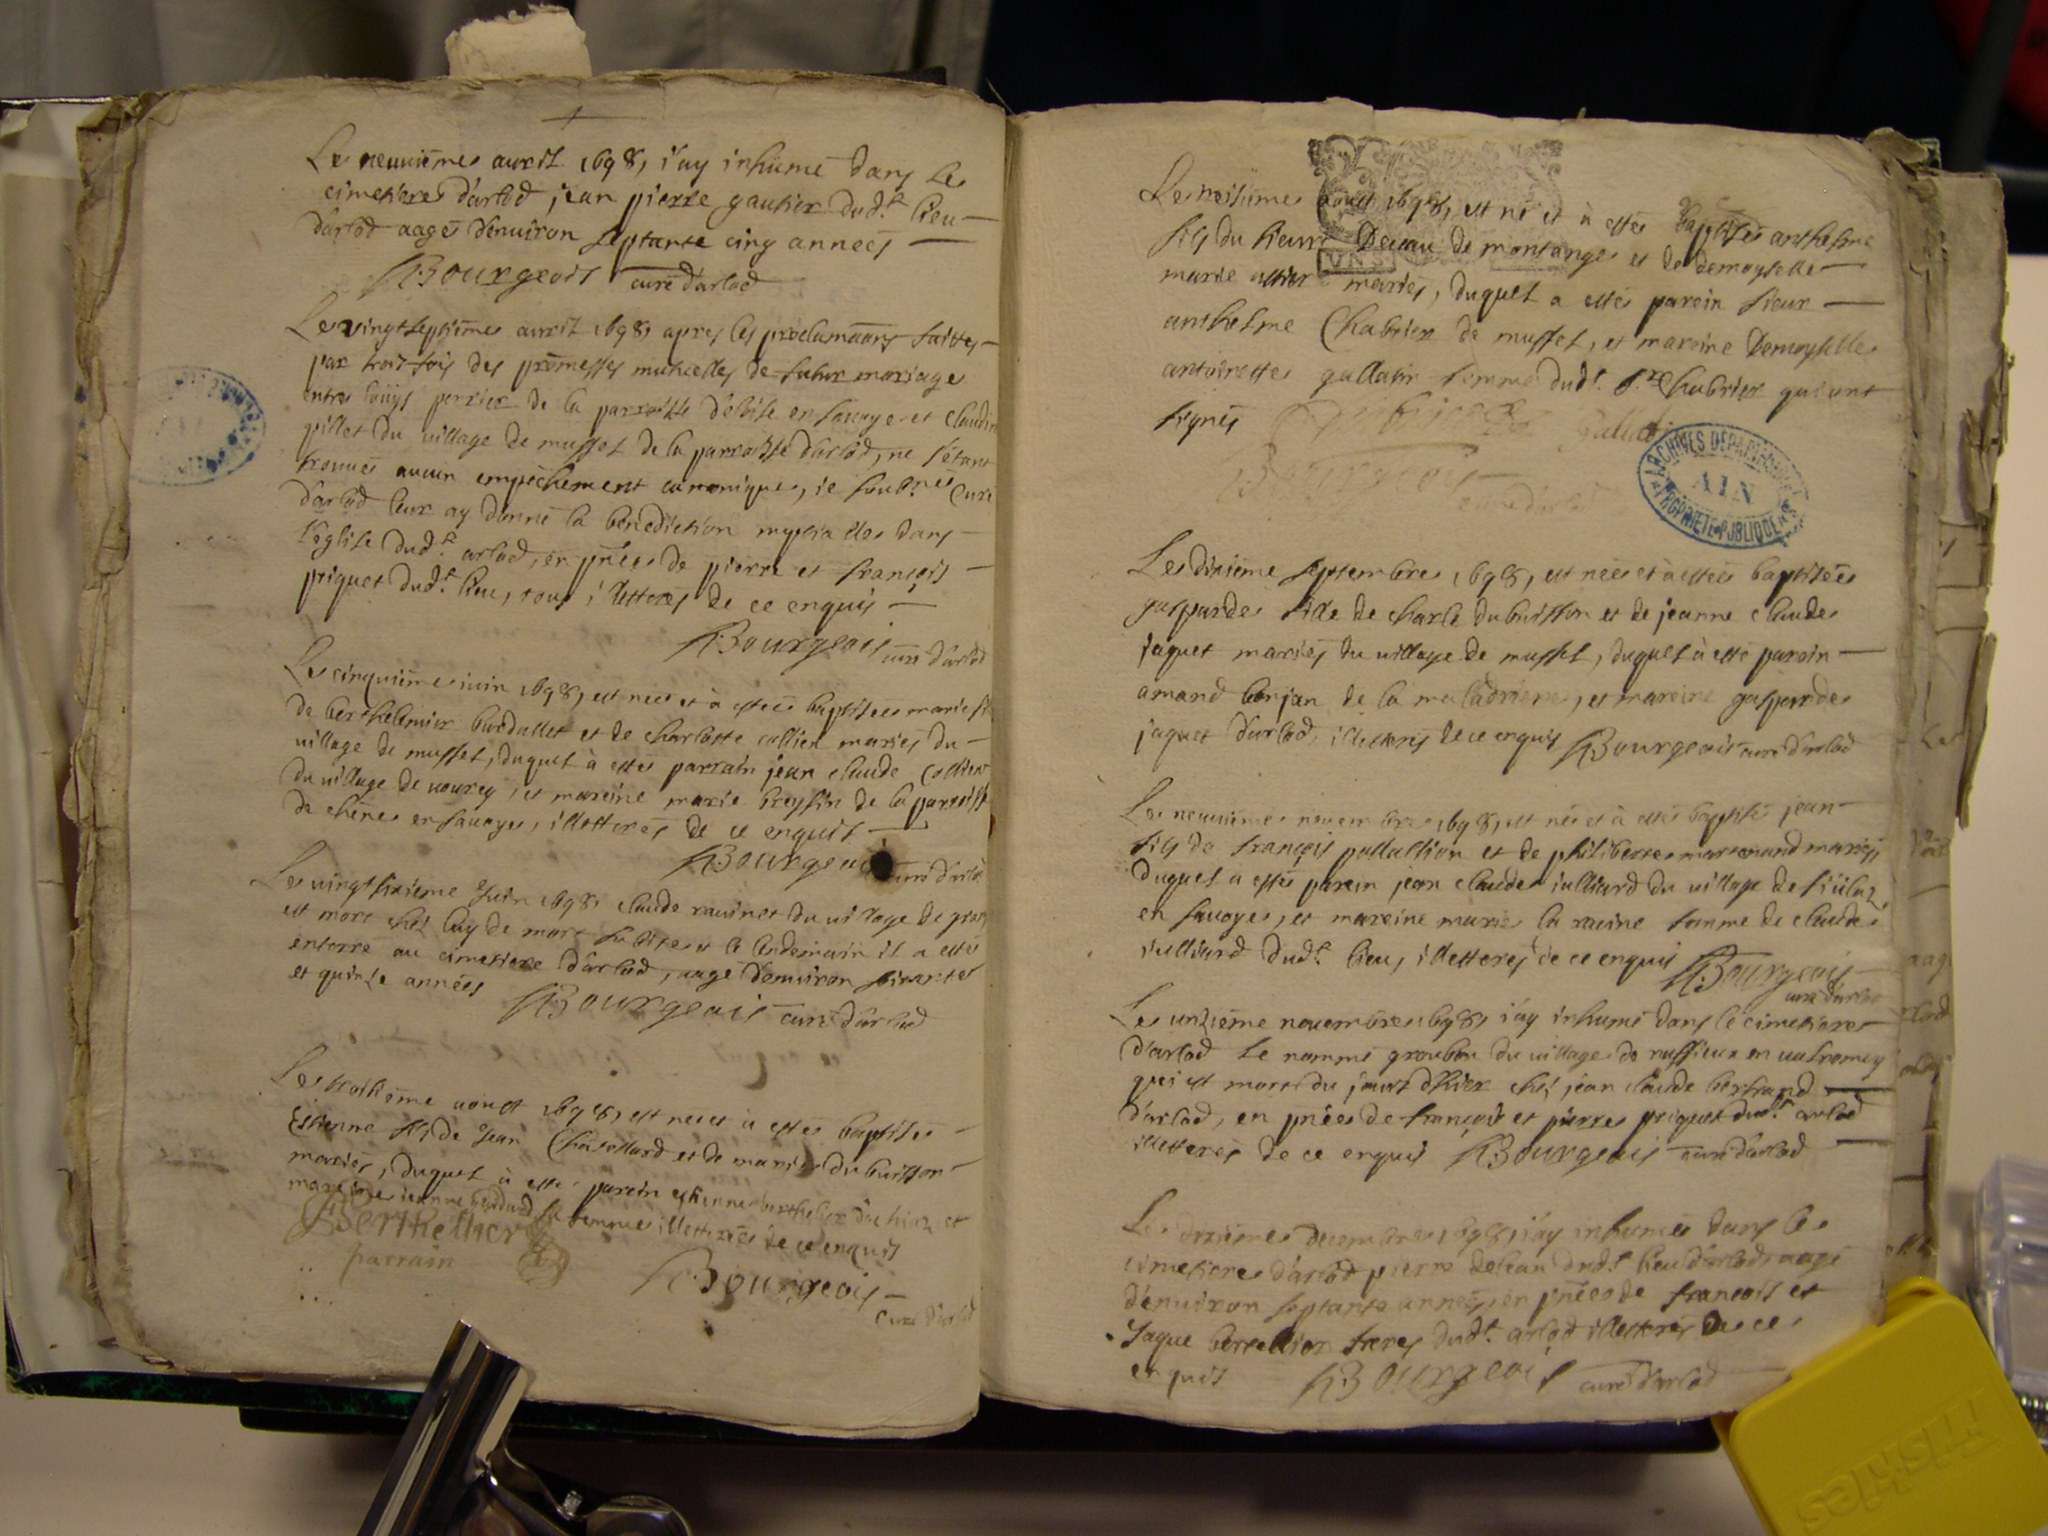 Le neuuiéme auril 1698, i'ay inhumé dans le
cimetiere d'arlod, jean pierre gautier dud.t lieu
d'arlod aagé d'enuiron septante cinq années
Bourgeois curé d'arlod
Le vingtseptiéme auril 1698 apres les proclamaôns faittes
par trois fois des promesses mutuelles de futur mariage
entre perrier de la parroisse d'eloise en sauoye et claudine
gillet du village de musset de la parroisse d'arlod, ne s'étant
trouué aucun empéchement canonique, ie soub.né Curé
d'arlod leur ay donné la bénédiction nuptialle dans
l'église dud.t arlod, en pñce de pierre et françois
priquet dud.t lieu, tous illetterés de ce enquis
Bourgeois curé d'arlod
Le cinquiéme iuin 1698, est née et à esteé baptiseé marie fi
de berthelemier burdallet et de charlotte collier mariés du
uillage de musset, duquel à esté parrain jean claude Collier
du uillage de uourey, et mareine marie breyssin de la parroisse
de chéne en sauoye, illetterés de ce enquis
Bourgeois curé d'arlod
Le vingtsixieme Juin 1698 claude rauinet du uillage de
est mort chez luy de mort subite et le lendemain il a esté
enterré au cimetiere d'arlod, aagé d'enuiron soixante
et quinze années Bourgeois curé d'arlod
Le troisiéme aoust 1698, est né et à esté baptisé
Estienne fils de Jean Chatellard et de marie du buisson
mariés, duquel à esté parein estienne berthelier et
mareine ieanne sa femme illetterés de ce enquis
Berthellier
parrain
Bourgeois
curé d'arlod
Le aoust 1698, est né et à estée baptisé anthelme
fils du sieur de montange et de demoyselle
marie mariés, duquel a esté parein sieur
anthelme Chabrier de musset, et mareine Demoyselle
antoinette gallatin femme dud.t S.r Chabrier qui ont
signés
Bourgeois
curé d'arlod
ARCHIVES DEPARTEMENTALES
AIN
PROPRIETE PUBLIQUE
Le dixiéme septembre 1698, est née et à estée baptisée
gasparde fille de charle du buisson et de jeanne claude
jaquet mariés du uillage de musset, duquel à esté parein
amand bonjan de la maladriere, et mareine gasparde
jaquet d'arlod, illetterés de ce enquis Bourgeois curé d'arlod
Le neuuiéme nouembre 1698, est né et à esté baptisé jean
fils de françois pallattion et de philiberte mariés
duquel a esté parein jean claude iulliard du uillage de
en sauoye, et mareine marie la rauine famme de claude
iulliard dud.t lieu, illetterés de ce enquis Bourgeois
curé d'arlod
Le unziéme nouembre 1698, i'ay inhumé dans le cimetiere
d'arlod le nommé du uillage de ruffieux en ualromey
qui est mort du jourd'hier chez jean claude bertrand
d'arlod, en pñce de françois et pierre priquet dud.t arlod
illetterés de ce enquis Bourgeois curé d'arlod
Le dixiéme decembre 1698, i'ay inhumé dans le
cimetiere d'arlod pierre dud.t lieu d'arlod, aagé
d'enuiron septante années, en pñce de francois et
Jaque freres dud.t arlod illetterés de ce
enquis Bourgeois curé d'arlod